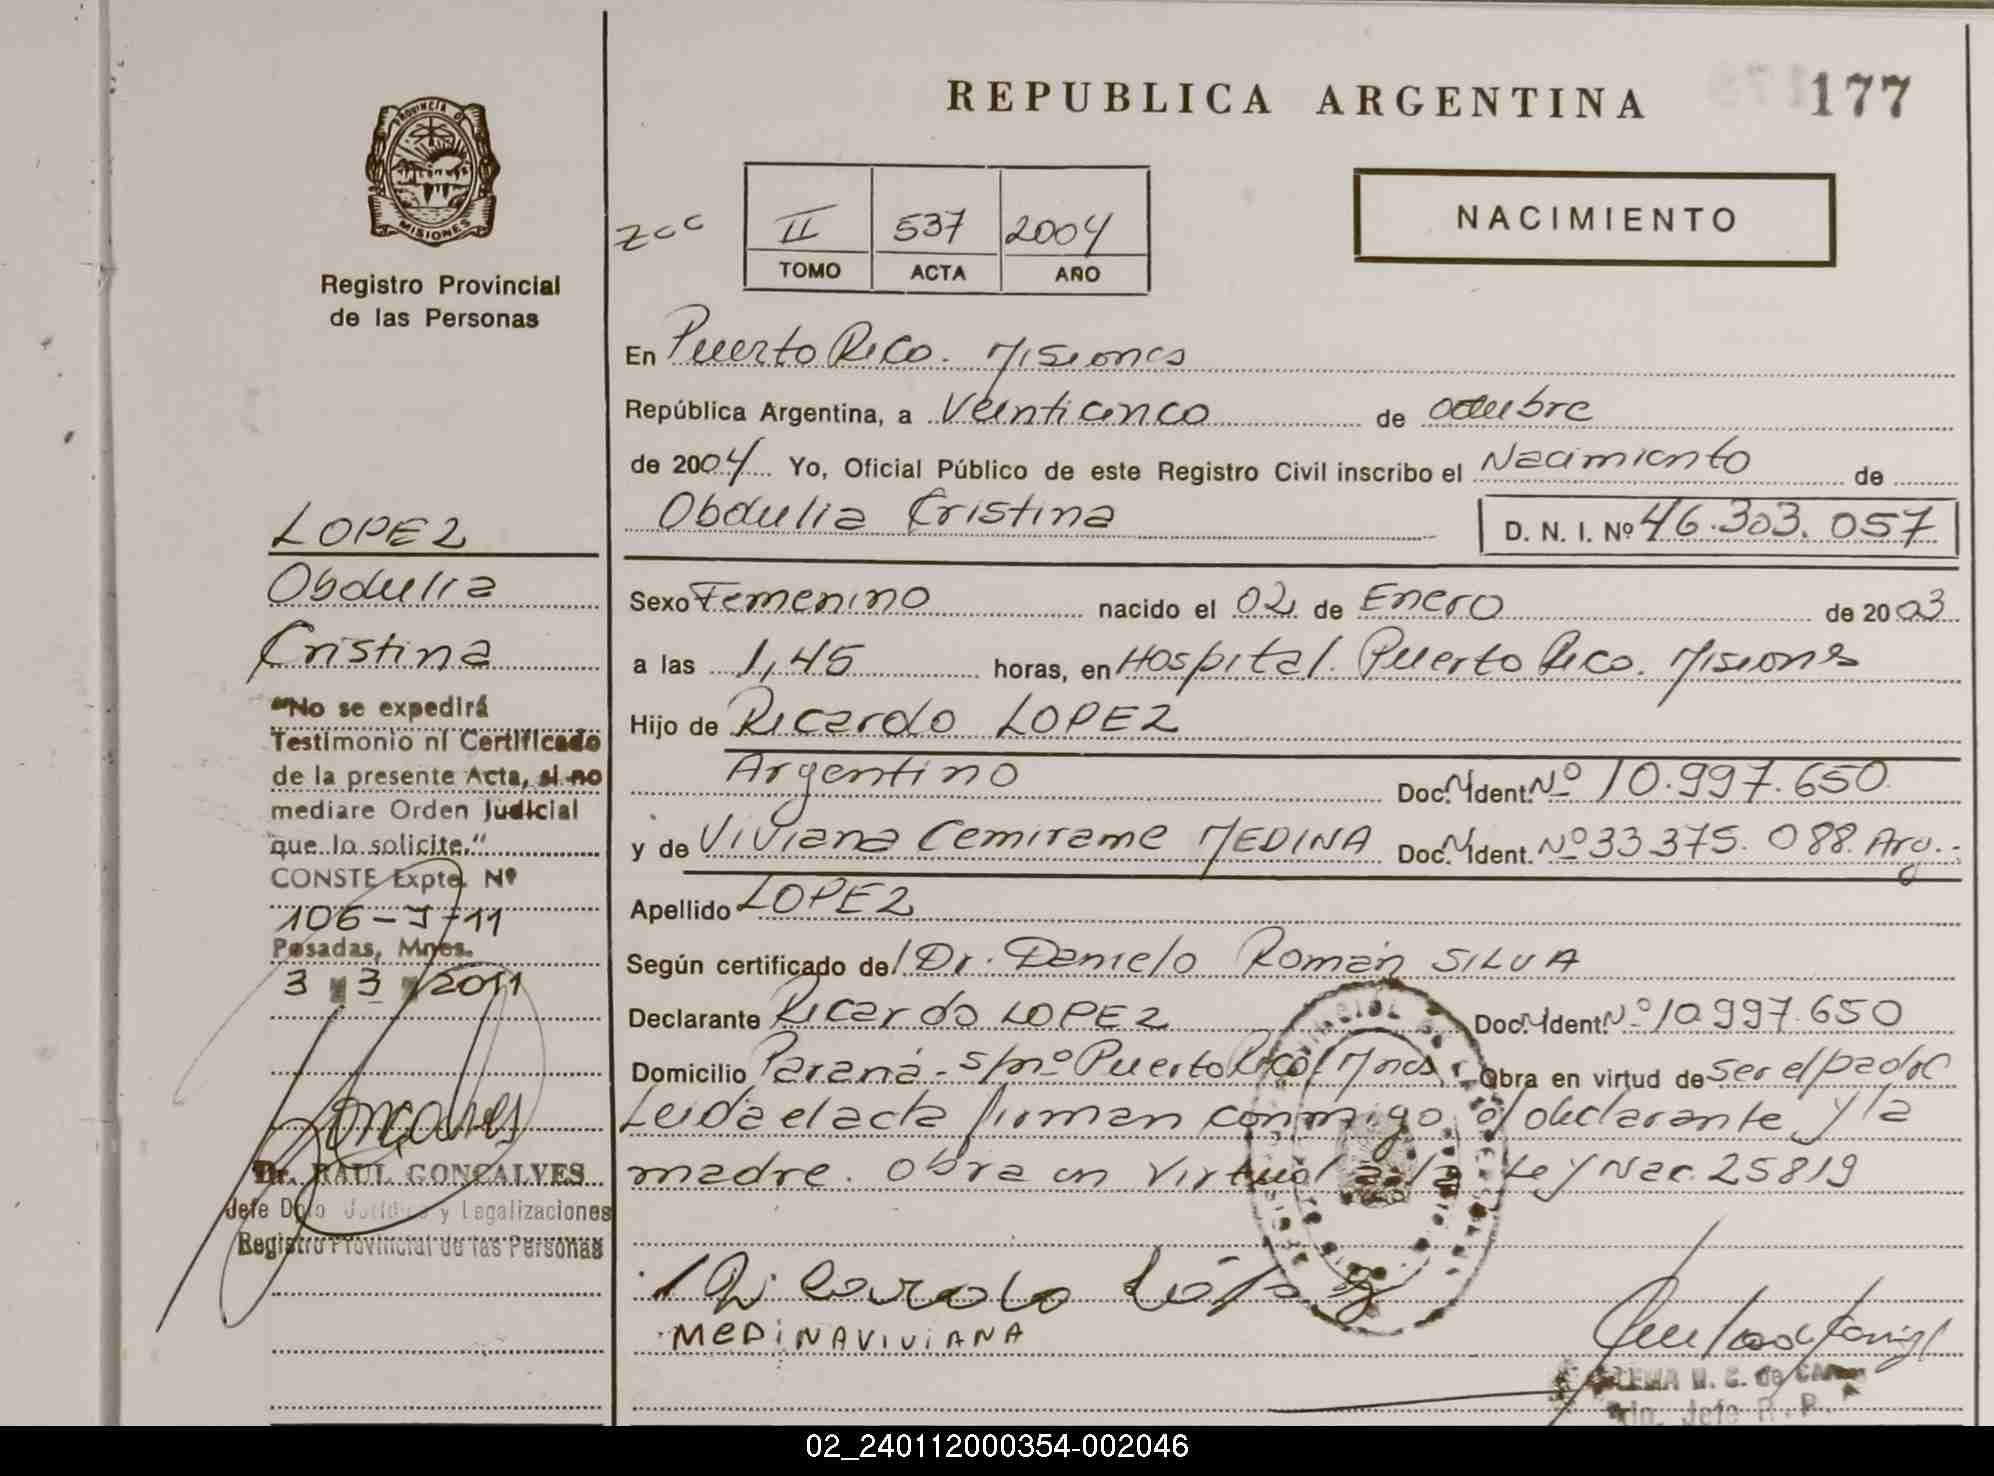 REPUBLICA ARGENTINA
177
PROVINCIA DE
MISIONES
Registro Provincial
de las Personas
zcc
II 537 2004
TOMO ACTA AÑO
NACIMIENTO
En Puerto Rico. Misiones
República Argentina, a Veinticinco de octubre
de 2004 Yo, Oficial Público de este Registro Civil inscribo el Nacimiento de
Obdulia Cristina D. N. I. Nº 46.303.057
Sexo Femenino nacido el 02 de Enero de 2003
a las 1,45 horas, en Hospital. Puerto Rico. Misiones
Hijo de Ricardo LOPEZ
Argentino Doc. Ident. Nº 10.997.650
y de Viviana Cemirame MEDINA Doc. Ident. Nº 33 375. 088. Arg.
Apellido LOPEZ
Según certificado del Dr. Danielo Román SILVA
Declarante Ricardo LOPEZ Doc. Ident. Nº 10 997.650
Domicilio Paraná - s/nº Puerto Rico Mnes Obra en virtud de ser el padre
Leida el acta firman conmigo el declarante y la
madre. Obra en Virtud a la Ley Nac. 25819
Ricardo López
MEDINA VIVIANA
N. C. de
Jefe R. P.
LOPEZ
Obdulia
Cristina
"No se expedirá
Testimonio ni Certificado
de la presente Acta, si no
mediare Orden Judicial
que lo solicite."
CONSTE Expte. Nº
106-J-11
Posadas, Mnes.
3 3 2011
Goncalves
Dr. RAUL GONCALVES
Jefe Dpto Jurídico y Legalizaciones
Registro Provincial de las Personas
02_240112000354-002046